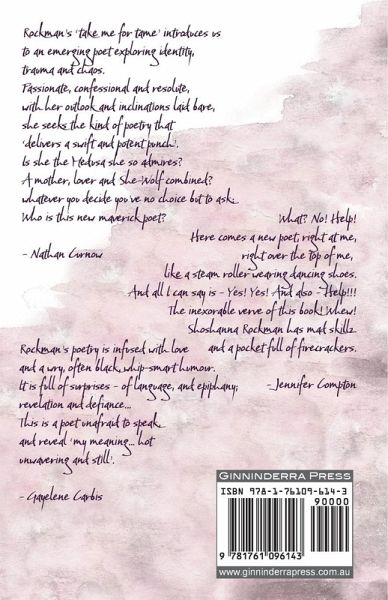 Rockman's 'take me for tame' introduces us
to an emerging poet exploring identity,
trauma and chaos.
Passionate, confessional and resolute,
with her outlook and inclinations laid bare,
she seeks the kind of poetry that
'delivers a swift and potent punch'.
Is she the Medusa she so admires?
A mother, lover and She-Wolf combined?
whatever you decide you've no choice but to ask.
Who is this new maverick poet?
- Nathan Curnow
What? No! Help!
Here comes a new poet, right at me,
right over the top of me,
like a steam roller wearing dancing shoes.
And all I can say is - Yes! Yes! And also - Help!!!
The inexorable verve of this book! Whew!
Shoshanna Rockman has mad skillz
and a pocket full of firecrackers.
-Jennifer Compton
Rockman's poetry is infused with love
and a wry, often black, whip-smart humour.
It is full of surprises - of language, and epiphany;
revelation and defiance...
This is a poet unafraid to speak
and reveal 'my meaning... hot
unwavering and still'.
- Gayelene Carbis
GINNINDERRA PRESS
ISBN 978-1-76109-614-3
90000
9 781761 096143
www.ginninderrapress.com.au